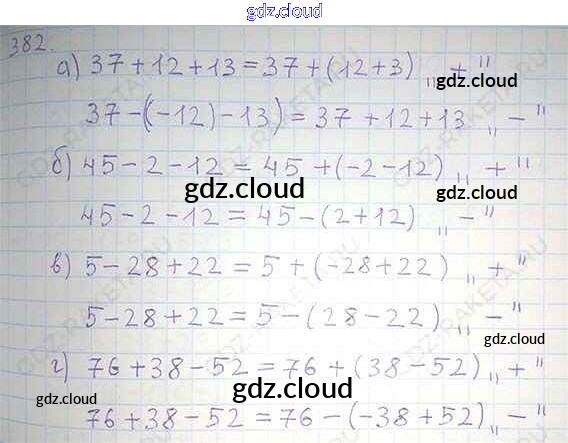 gdz.cloud
382.
а) 37+12+13=37+(12+3) „+"
gdz.cloud
37-(-12)-13)=37+12+13 „-"
б) 45-2-12=45+(-2-12) „+"
gdz.cloud
gdz.cloud
45-2-12=45-(2+12) „-"
в) 5-28+22=5+(-28+22) „+"
5-28+22=5-(28-22) „-"
gdz.cloud
г) 76+38-52=76+(38-52) „+"
gdz.cloud
gdz.cloud
gdz.cloud
76+38-52=76-(-38+52) „-"